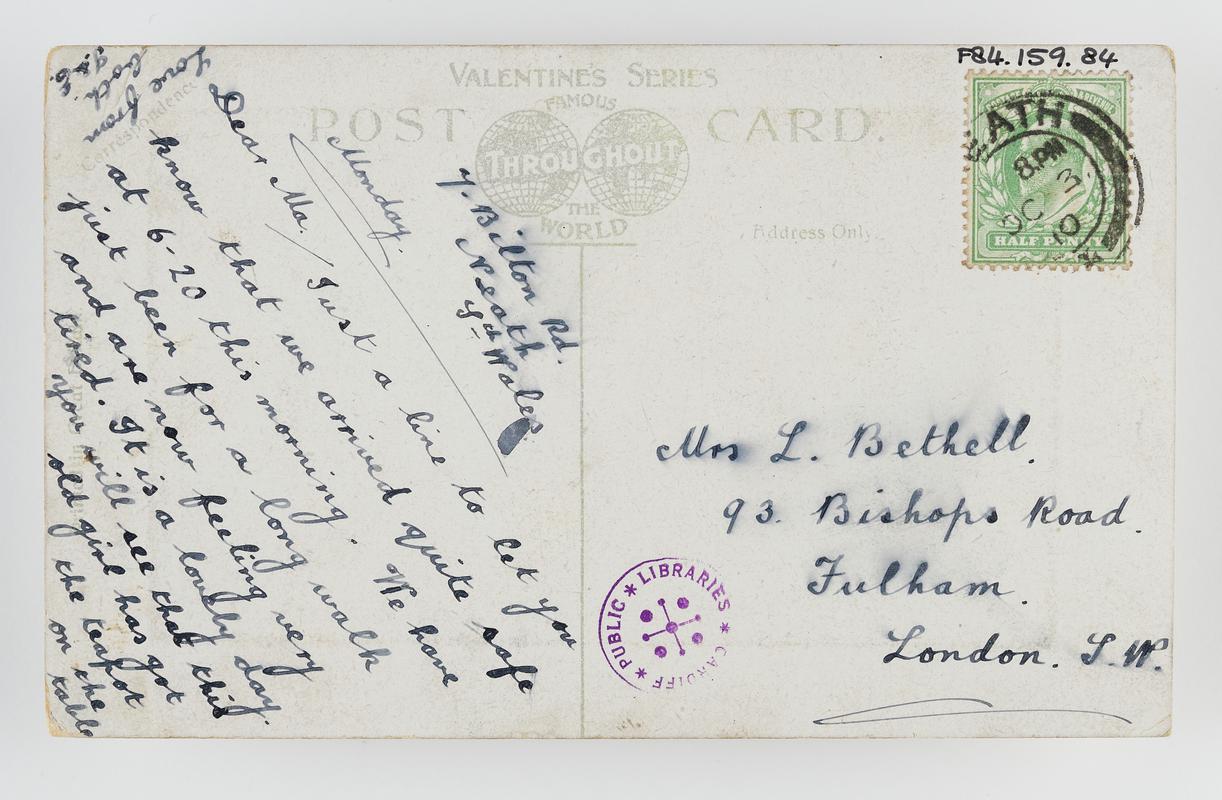 F84.159.84
VALENTINE'S SERIES
POST CARD.
FAMOUS
THROUGHOUT
THE
WORLD
Correspondence
Address Only.
EATH
8.PM
3
OC
10
HALF PENNY
7. Bilton Rd.
Neath
Sth Wales.
Monday.
Dear Ma. / Just a line to let you
know that we arrived quite safe
at 6-20 this morning. We have
just been for a long walk
and are now feeling very
tired. It is a lovely day.
you will see that this
old girl has got
the teapot
on the
table
Love
both from
Mrs L. Bethell.
93. Bishops Road.
Fulham.
London. S.W.
PUBLIC * LIBRARIES * CARDIFF *